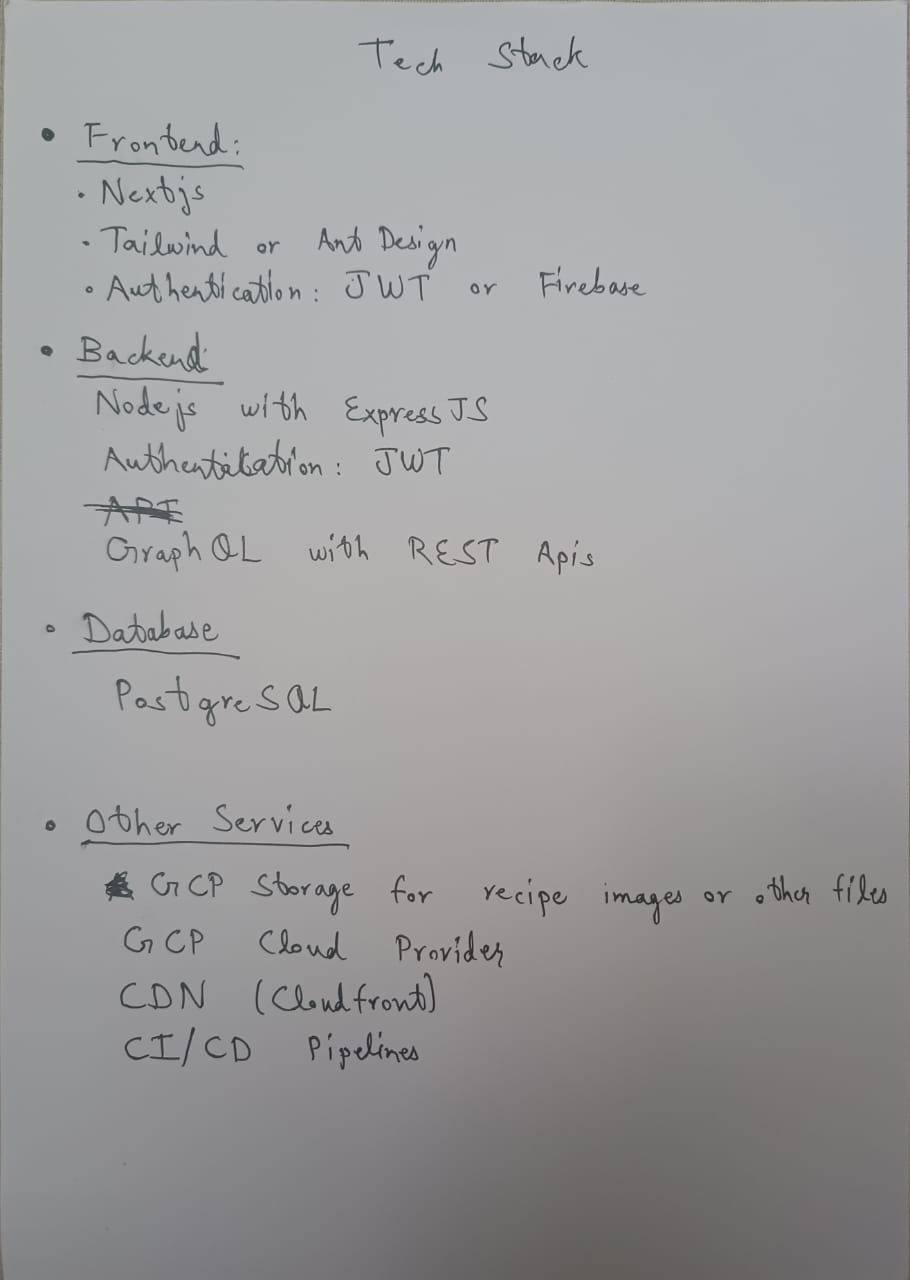 Tech Stack
• Frontend:
• Nextjs
• Tailwind or Ant Design
• Authentication: JWT or Firebase
• Backend:
Nodejs with ExpressJS
Authentication: JWT
API
GraphQL with REST Apis
• Database
PostgreSQL
• Other Services
GCP Storage for recipe images or other files
GCP Cloud Provider
CDN (Cloudfront)
CI/CD Pipelines